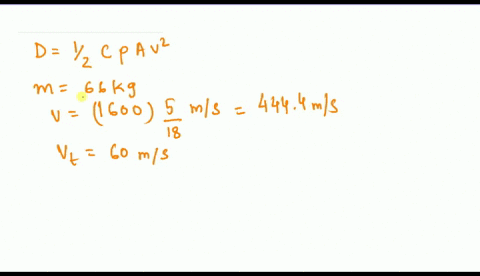 D = 1/2 C ρ A v²
m = 66 kg
v = (1600) 5/18 m/s = 444.4 m/s
V_t = 60 m/s